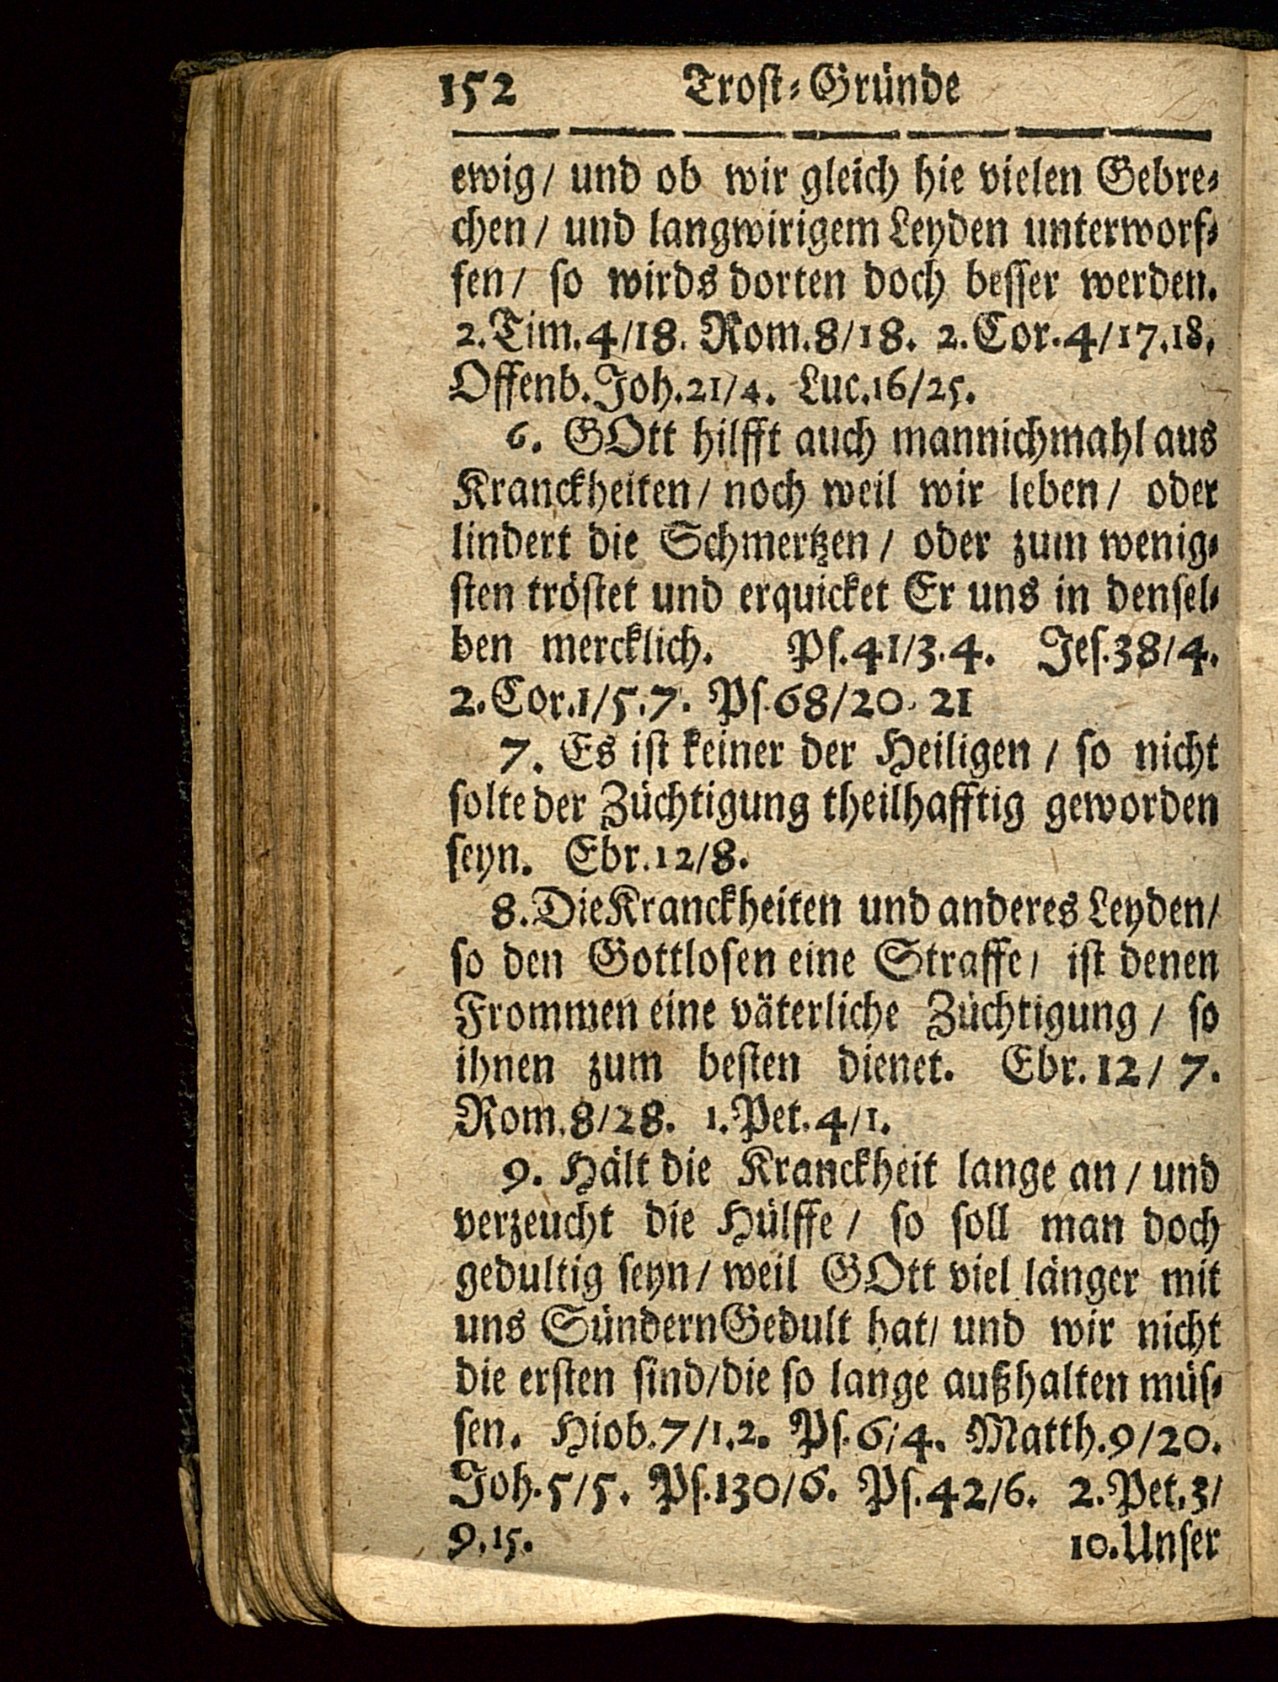 152 Trost-Gründe
ewig / und ob wir gleich hie vielen Gebre-
chen / und langwirigem Leyden unterworf-
fen / so wirds dorten doch besser werden.
2. Tim. 4/18. Rom. 8/18. 2. Cor. 4/17.18,
Offenb. Joh. 21/4. Luc. 16/25.
6. GOtt hilfft auch mannichmahl aus
Kranckheiten / noch weil wir leben / oder
lindert die Schmertzen / oder zum wenig-
sten tröstet und erquicket Er uns in densel-
ben mercklich. Ps. 41/3.4. Jes. 38/4.
2. Cor. 1/5.7. Ps. 68/20. 21
7. Es ist keiner der Heiligen / so nicht
solte der Züchtigung theilhafftig geworden
seyn. Ebr. 12/8.
8. Die Kranckheiten und anderes Leyden /
so den Gottlosen eine Straffe / ist denen
Frommen eine väterliche Züchtigung / so
ihnen zum besten dienet. Ebr. 12/7.
Rom. 8/28. 1. Pet. 4/1.
9. Hält die Kranckheit lange an / und
verzeucht die Hülffe / so soll man doch
gedultig seyn / weil GOtt viel länger mit
uns Sündern Gedult hat / und wir nicht
die ersten sind / die so lange außhalten müs-
sen. Hiob. 7/1.2. Ps. 6/4. Matth. 9/20.
Joh. 5/5. Ps. 130/6. Ps. 42/6. 2. Pet. 3/
9.15. 10. Unser